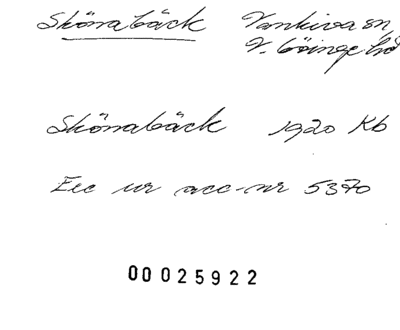 Skönabäck Vankiva sn,
V. Göinge hd
Skönabäck 1920 Kb
Exc ur acc-nr 5370
00025922